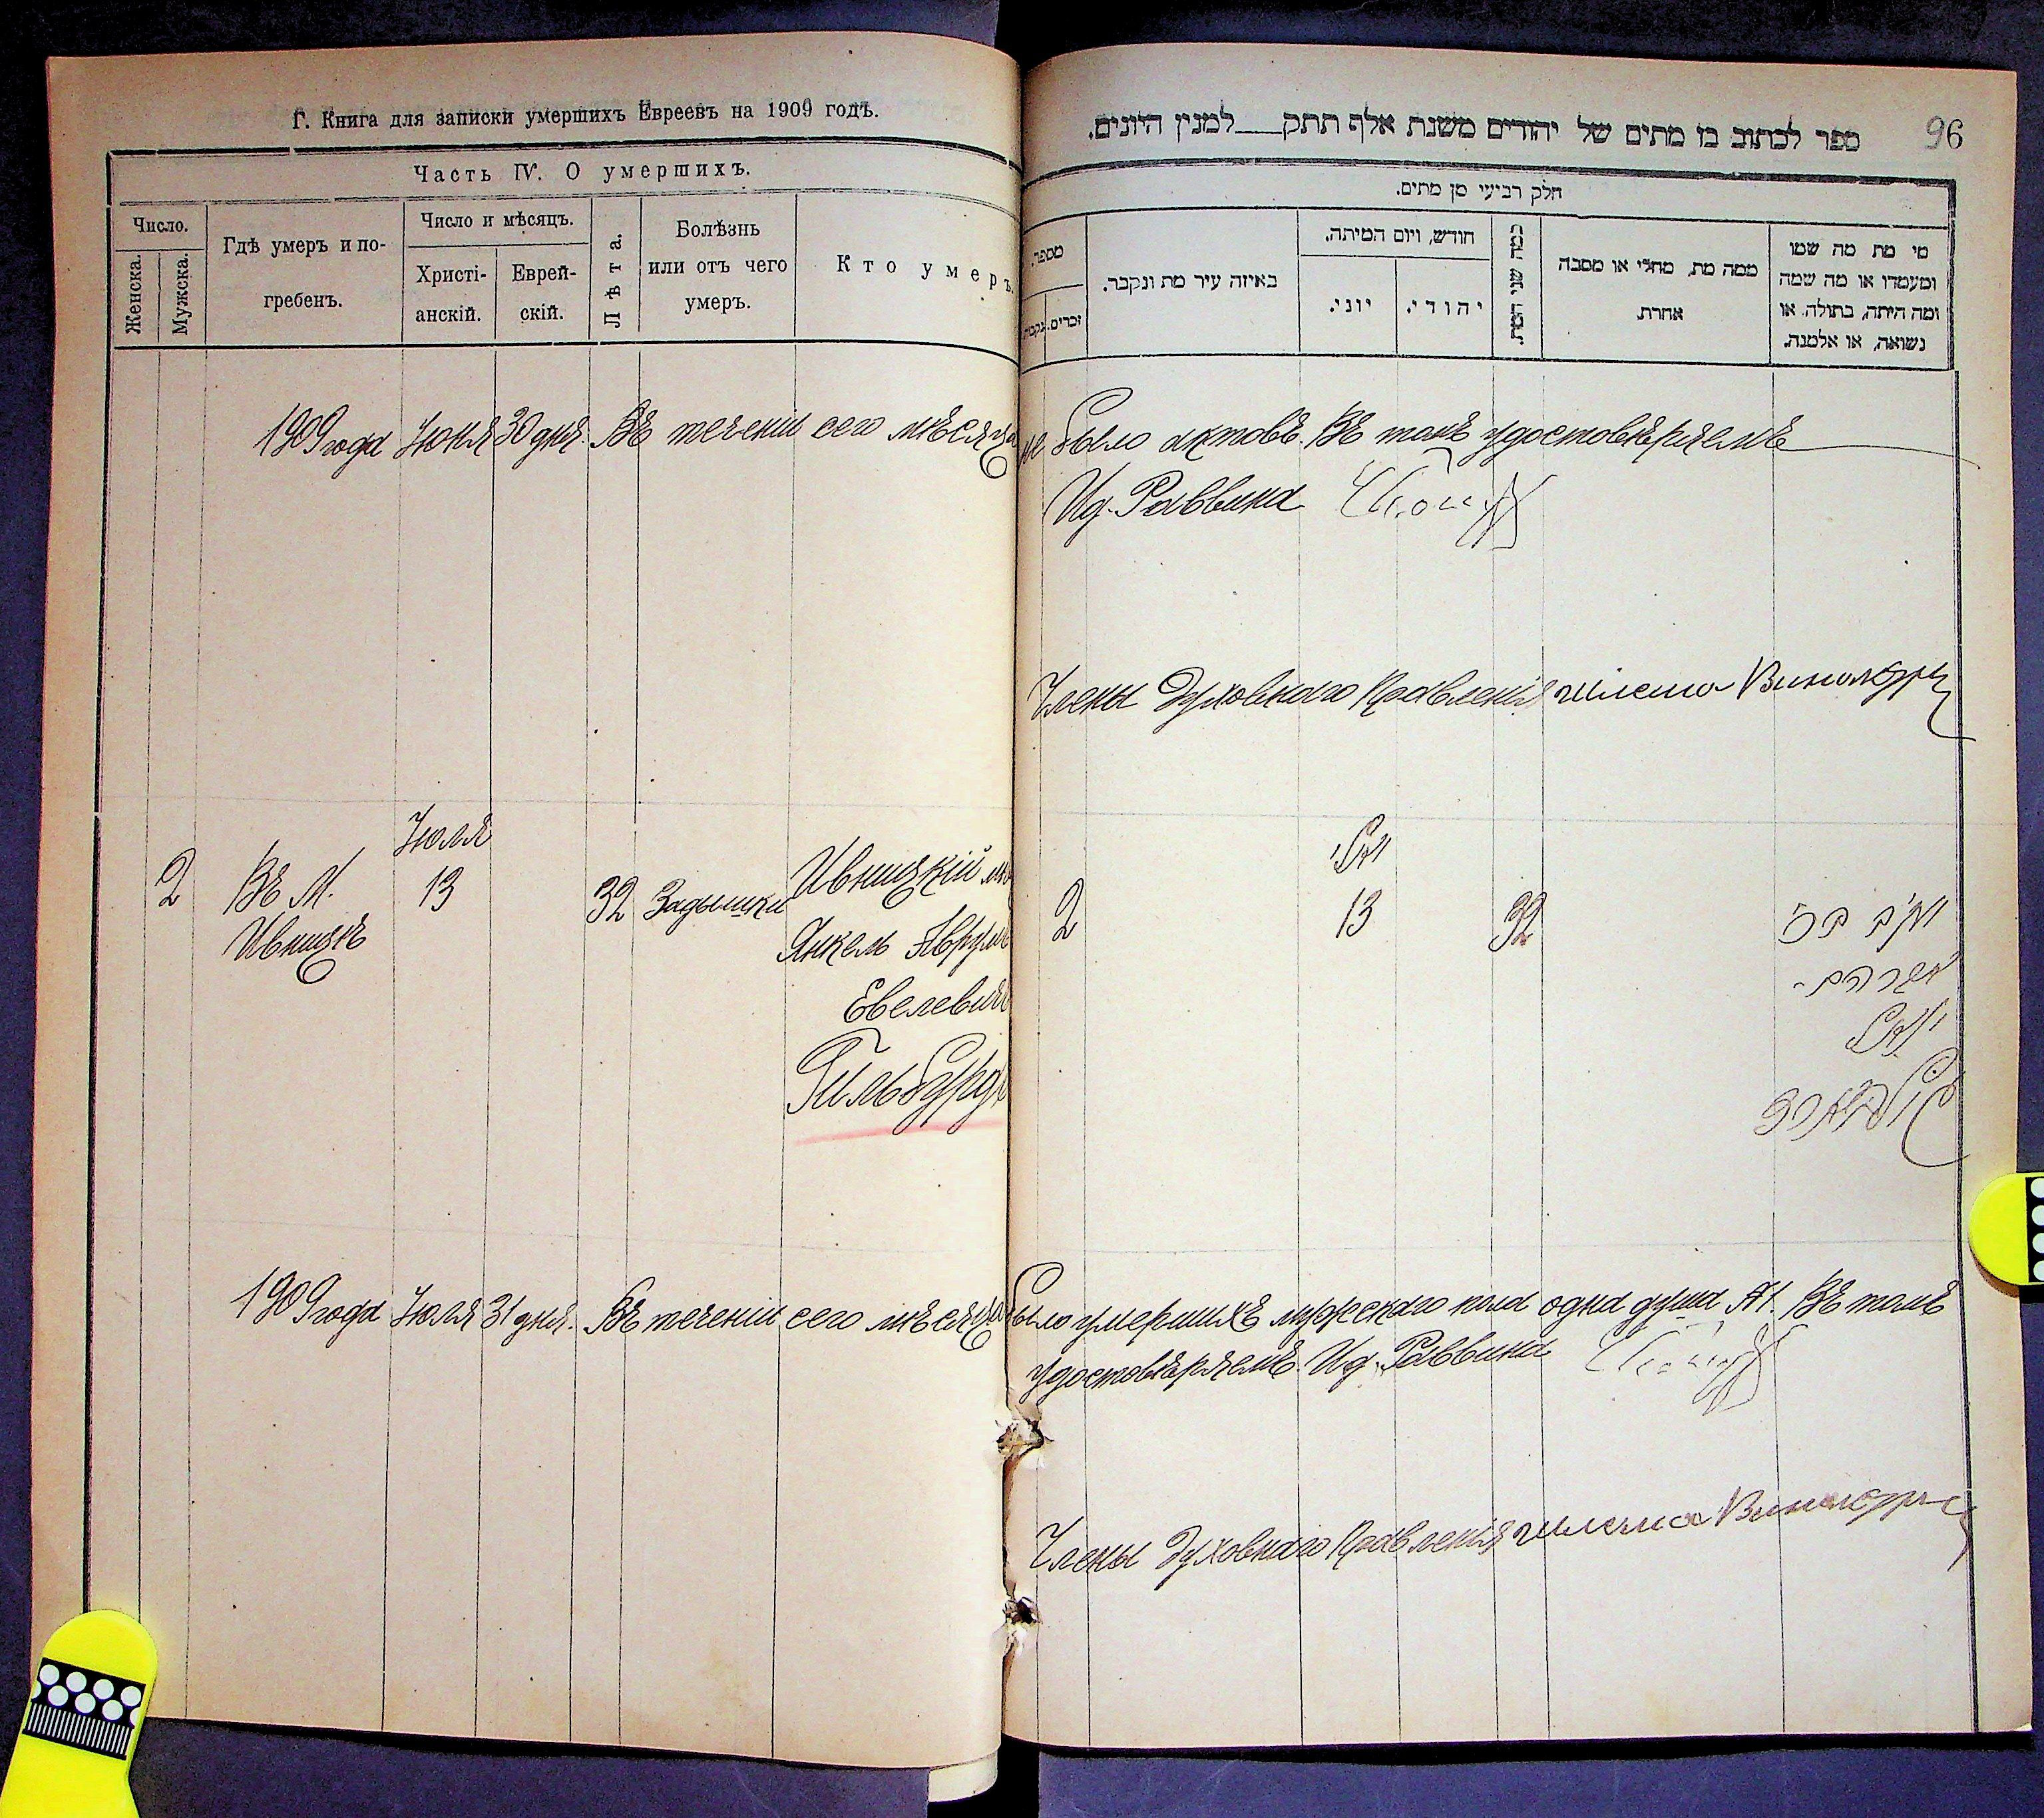 Г. Книга для записки умершихъ Евреевъ на 1909 годъ.
Часть IV. О умершихъ.
Число.
Женска.
Мужска.
Гдѣ умеръ и по-
гребенъ.
Число и мѣсяцъ.
Христі-
анскій.
Еврей-
скій.
Лѣта.
Болѣзнь
или отъ чего
умеръ.
Кто умеръ.
1909 года Іюня 30 дня. Въ теченіи сего мѣсяца
Іюля
2 Въ М. 13 32 Задышки Ивницкій
Ивницѣ Янкель Аврумъ
Евелевичъ
Гильбурдъ
1909 года Іюля 31 дня. Въ теченіи сего мѣсяца
96
ספר לכתוב בו מתים של יהודים משנת אלף תתק למנין היונים.
חלק רביעי מן מתים.
מספר.
נקבות
זכרים.
באיזה עיר מת ונקבר.
חודש, ויום המיתה.
יוני.
יהודי.
כמה שני המת.
ממה מת, מחלי או מסבה
אחרת
מי מת מה שמו
ומעמדו או מה שמה
ומה היתה, בתולה או
נשואה, או אלמנה.
не было актовъ. Въ томъ удостовѣряемъ
Ид. Раввина
Члены Духовнаго Правленія Шлема
יולי
2 13 32 יעקב בר׳
אברהם
1 было умершихъ мужескаго пола одна душа №1. Въ томъ
удостовѣряемъ. Ид. Раввина
Члены Духовнаго Правленія Шлема